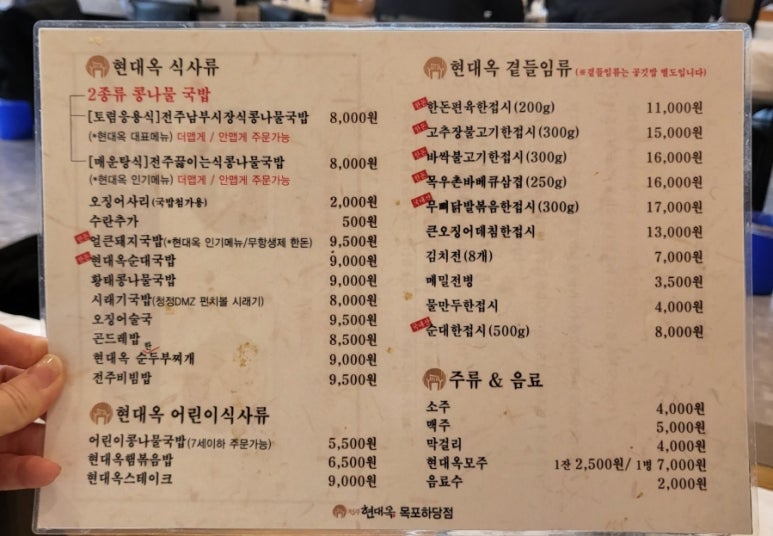 현대옥 식사류
2종류 콩나물 국밥
[토렴응용식]전주남부시장식콩나물국밥 8,000원
(*현대옥 대표메뉴) 더맵게 / 안맵게 주문가능
[매운탕식]전주끓이는식콩나물국밥 8,000원
(*현대옥 인기메뉴) 더맵게 / 안맵게 주문가능
오징어사리(국밥첨가용) 2,000원
수란추가 500원
얼큰돼지국밥(*현대옥 인기메뉴/무항생제 한돈) 9,500원
현대옥순대국밥 9,000원
황태콩나물국밥 9,000원
시래기국밥(청정DMZ 펀치볼 시래기) 8,000원
오징어술국 9,500원
곤드레밥 8,500원
현대옥 순두부찌개 9,000원
전주비빔밥 9,500원
현대옥 어린이식사류
어린이콩나물국밥(7세이하 주문가능) 5,500원
현대옥햄볶음밥 6,500원
현대옥스테이크 9,000원
현대옥 곁들임류 (※곁들임류는 공깃밥 별도입니다)
한돈편육한접시(200g) 11,000원
고추장불고기한접시(300g) 15,000원
바싹불고기한접시(300g) 16,000원
목우촌바베큐삼겹(250g) 16,000원
무뼈닭발볶음한접시(300g) 17,000원
큰오징어데침한접시 13,000원
김치전(8개) 7,000원
메밀전병 3,500원
물만두한접시 4,000원
순대한접시(500g) 8,000원
주류 & 음료
소주 4,000원
맥주 5,000원
막걸리 4,000원
현대옥모주 1잔 2,500원/ 1병 7,000원
음료수 2,000원
전주 현대옥 목포하당점